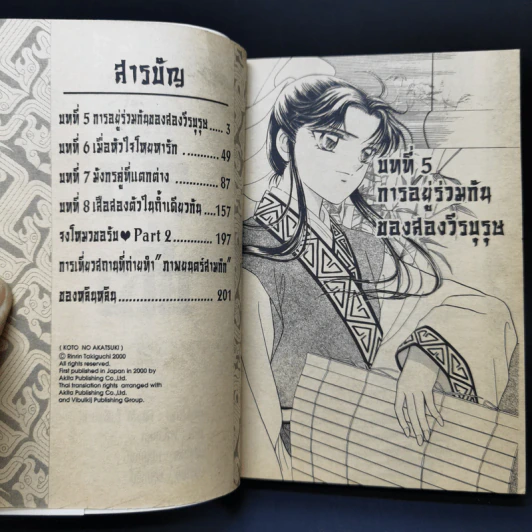 สารบัญ
บทที่ 5 การอยู่ร่วมกันของสองวีรบุรุษ.....3
บทที่ 6 เมื่อหัวใจโหยหารัก ................. 49
บทที่ 7 มังกรคู่ที่แตกต่าง.................. 87
บทที่ 8 เสือสองตัวในถ้ำเดียวกัน ......157
จงโหมวขอรับ ♥ Part 2............... 197
การเที่ยวสถานที่ถ่ายทำ "ภาพยนตร์สามก๊ก"
ของหลินหลิน........................... 201
( KOTO NO AKATSUKI )
© Rinrin Takiguchi 2000
All rights reserved.
First published in Japan in 2000 by
Akita Publishing Co.,Ltd.
Thai translation rights arranged with
Akita Publishing Co.,Ltd.
and Vibulkij Publishing Group.
บทที่ 5
การอยู่ร่วมกัน
ของสองวีรบุรุษ